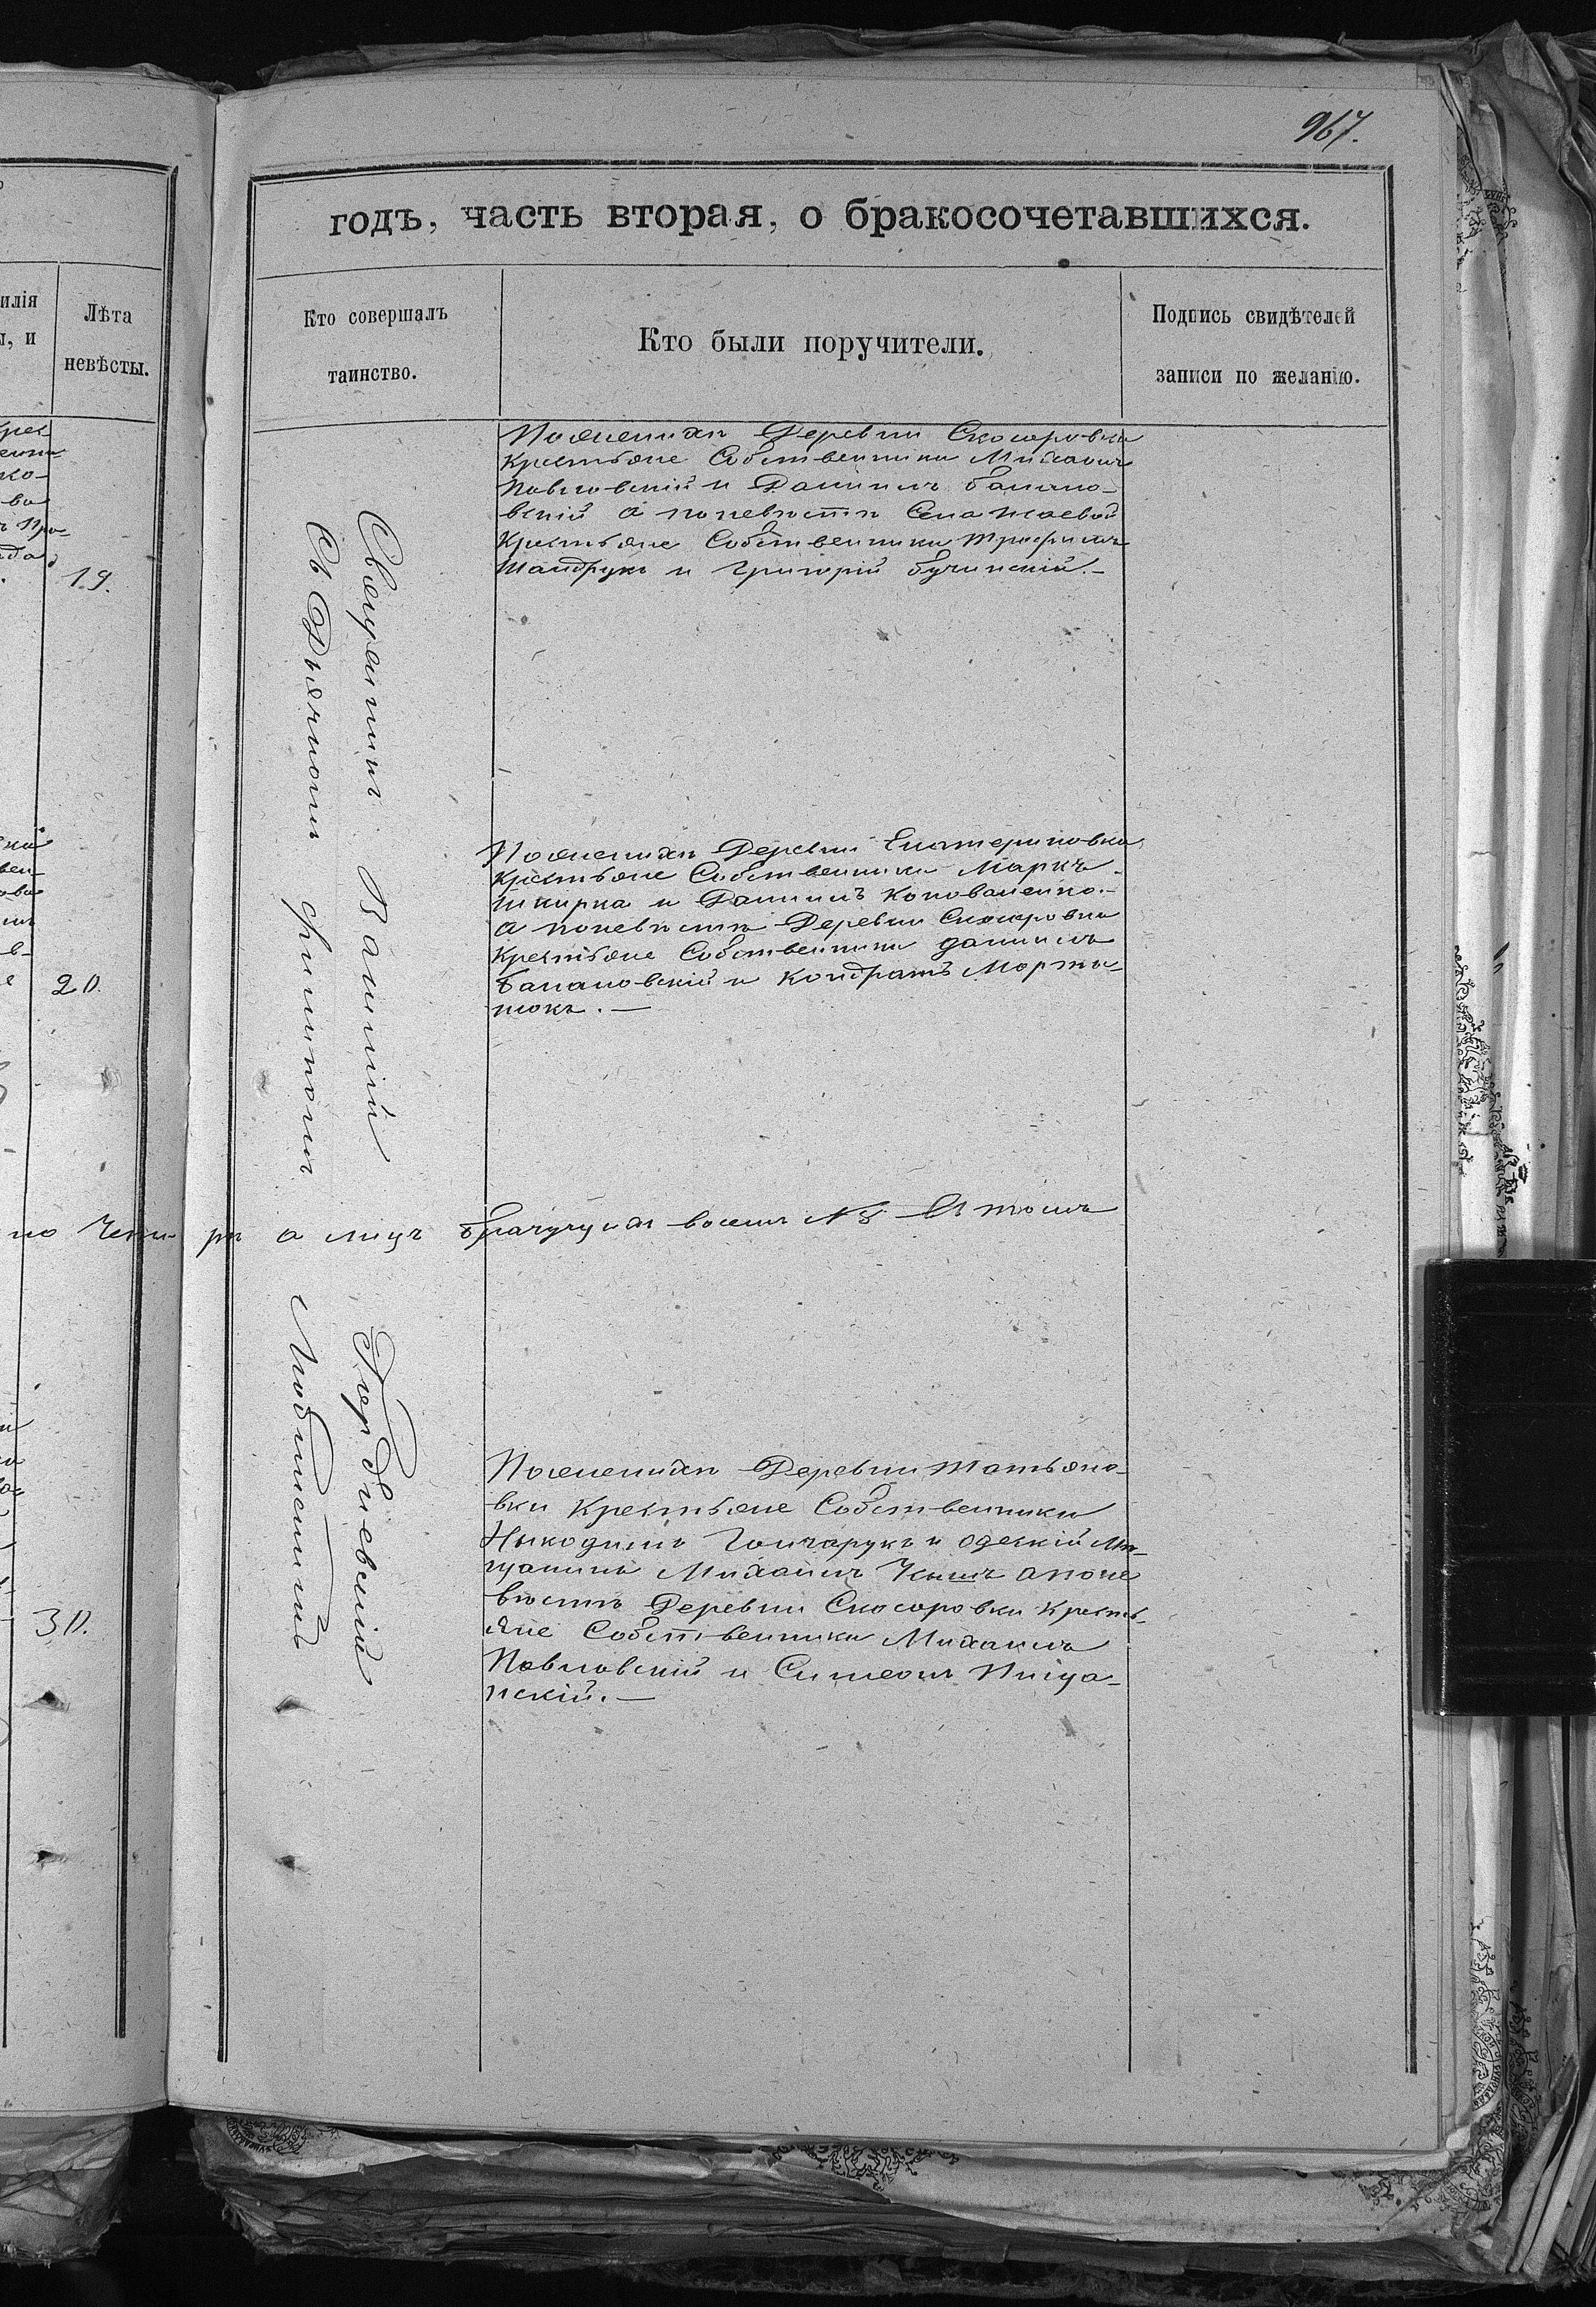 967.
годъ, часть вторая, о бракосочетавшихся.
илія
, и
Лѣта
невѣсты.
Кто совершалъ
таинство.
Кто были поручители.
Подпись свидѣтелей
записи по желанію.
19.
20.
30.
Священникъ Василій Гербаневскій
Съ Дьячкомъ Филипомъ
По женихѣ Деревни Скосаровки
Крестьяне Собственники Михаилъ
Павловскій и Даніилъ Банано-
вскій а по невѣстѣ
Крестьяне Собственники Трофимъ
Шандрукъ и Григорій Бучинскій.-
По женихѣ Деревни Екатериновки
Крестьяне Собственники Маркъ
Шкирка и Даніилъ Коноваленко.-
а по невѣстѣ Деревни Скосаровки
Крестьяне Собственники Даніилъ
Банановскій и Кондратъ Марты-
нюкъ.—
но Четы- ре а лицъ брачущихся восемь № 8
По женихѣ Деревни Татьяно-
вки Крестьяне Собственники
Никодимъ Гончарукъ и Одескій мѣ-
щанинъ Михаилъ а по не
вѣстѣ Деревни Скосаровки Кресть-
яне Собственники Михаилъ
Павловскій и Симеонъ
нскій.—